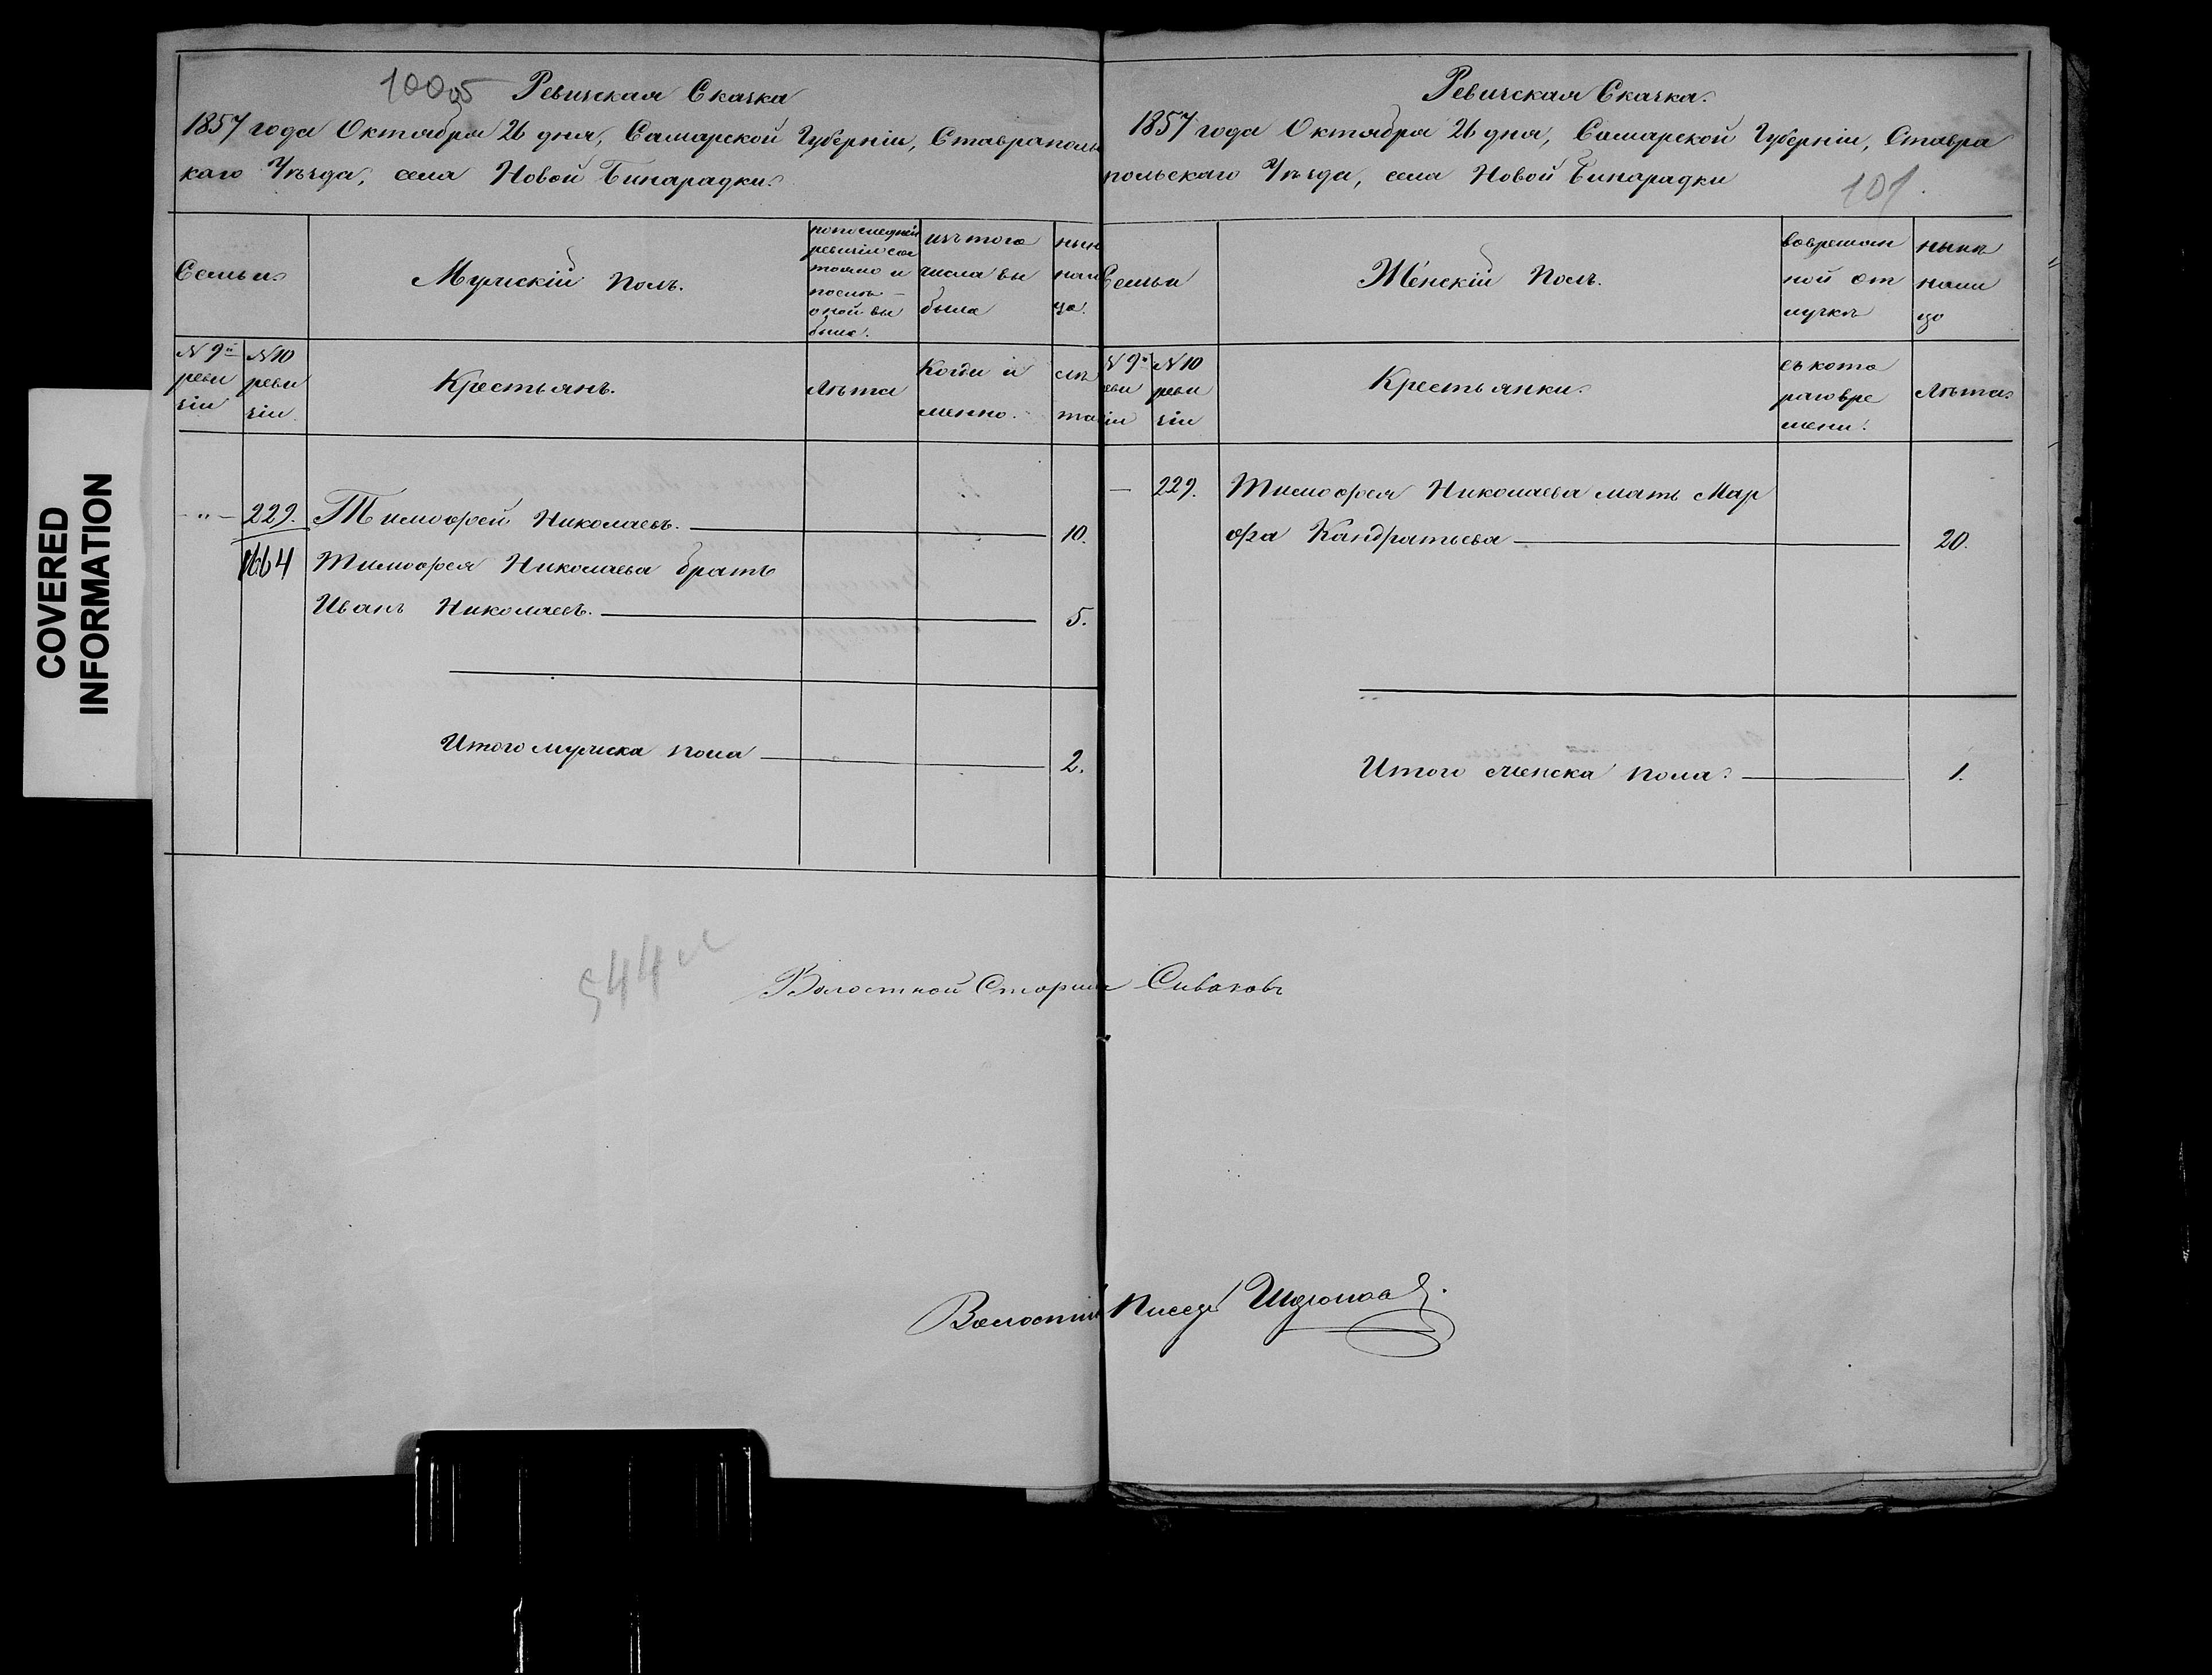 100об
Ревизская Сказка
1857 года Октября 26 дня, Самарской Губерніи, Ставраполь
каго Уѣзда, села Новой Бинарадки.
Семьи.
Мужскій полъ.
попоследней
ревизіи сос
тояло и
послѣ
оной вы
было.
изътого
числа вы
было
нын
нали
цо.
№ 9й
реви
зіи
№ 10
реви
зіи.
Крестьянъ.
Лѣта
Когда и
менно.
лѣ
та
229. Тимофей Николаевъ. 10.
1664 Тимофея Николаева братъ
Иванъ Николаевъ. 5.
Итого мужска пола 2.
544
Ревизская Сказка.
1857 года Октября 26 дня, Самарской Губерніи, Ставра
польскаго Уѣзда, села Новой Бинарадки
101.
Семьи
Женскій Полъ.
вовремян
ной от
лучкѣ
нынѣ
нали
цо
№ 9й
еви
зіи
№ 10
реви
зіи
Крестьянки.
съ кото
раговре
мени.
Лѣта.
229. Тимофея Николаева мать Мар
фа Кандратьева 20.
Итого женска пола. 1.
Волостной Старши Сиваковъ
Волостни Писарь
COVERED
INFORMATION